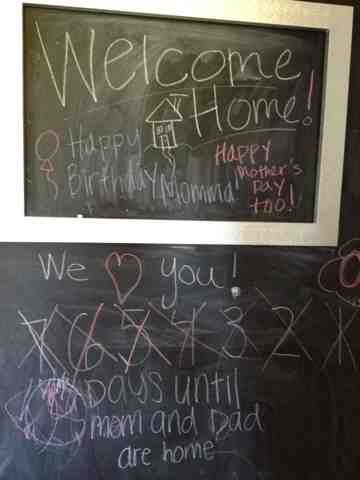 Welcome
Home!
Happy
Birthday Momma!
Happy
Mother's
Day
too!
We you!
7 6 5 4 3 2 1
Days until
mom and Dad
are home